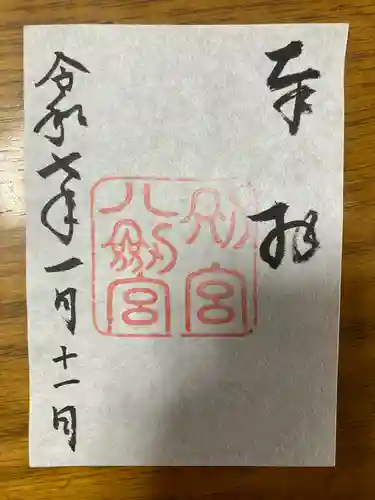 奉拝
別宮
八剣宮
令和六年一月十一日